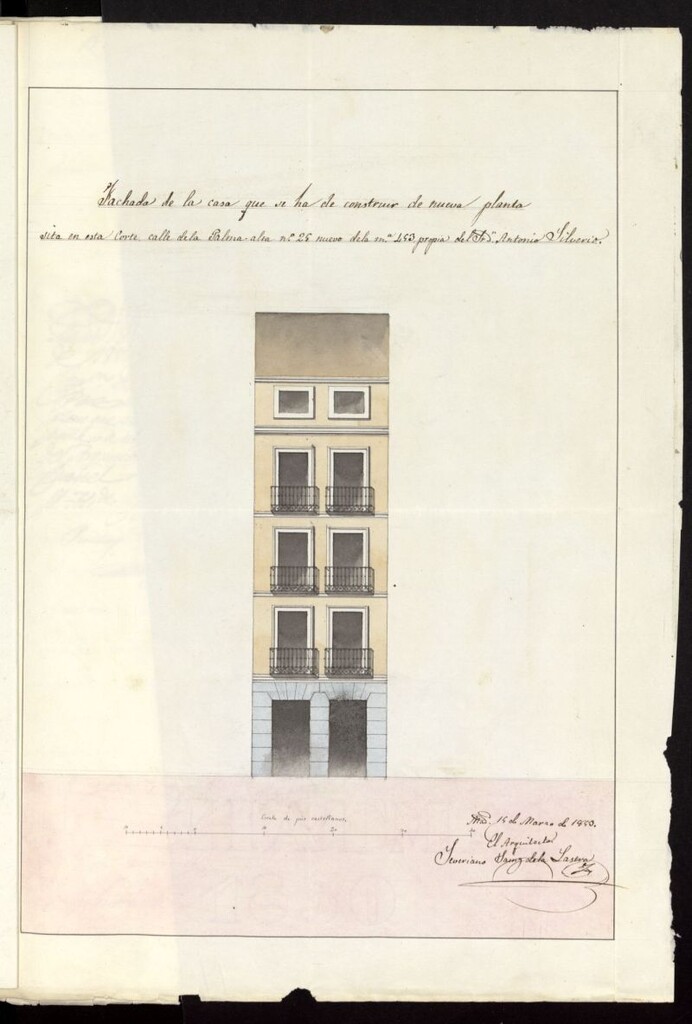 Fachada de la casa que se ha de construir de nueva planta
sita en esta Corte calle de la Palma alta nº 25 nuevo de la mª 453 propia del Sr. Dn. Antonio Silverio.
Escala de pies castellanos
Mad. 15 de Marzo de 1853.
El Arquitecto
Severiano Sainz de la Lastra